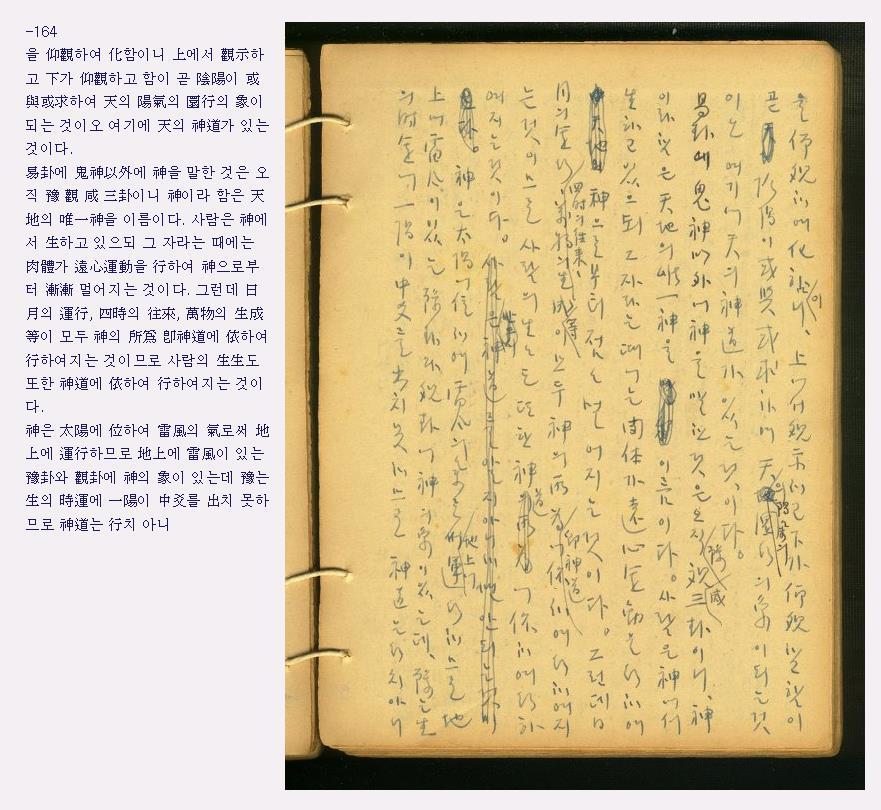 -164
을 仰觀하여 化함이니 上에서 觀示하
고 下가 仰觀하고 함이 곧 陰陽이 或
與或求하여 天의 陽氣의 圜行의 象이
되는 것이오 여기에 天의 神道가 있는
것이다.
易卦에 鬼神以外에 神을 말한 것은 오
직 豫 觀 咸 三卦이니 神이라 함은 天
地의 唯一神을 이름이다. 사람은 神에
서 生하고 있으되 그 자라는 때에는
肉體가 遠心運動을 行하여 神으로부
터 漸漸 멀어지는 것이다. 그런데 日
月의 運行, 四時의 往來, 萬物의 生成
等이 모두 神의 所爲 卽神道에 依하여
行하여지는 것이므로 사람의 生生도
또한 神道에 依하여 行하여지는 것이
다.
神은 太陽에 位하여 雷風의 氣로써 地
上에 運行하므로 地上에 雷風이 있는
豫卦와 觀卦에 神의 象이 있는데 豫는
生의 時運에 一陽이 中爻를 出치 못하
므로 神道는 行치 아니
을 仰觀하여 化함이니, 上에서 觀示하고 下가 仰觀하고 함이
곧 陰陽이 或與或求하여 天의 陽氣의 圜行의 象이 되는 것
이오 여기에 天의 神道가 있는 것이다.
易卦에 鬼神以外에 神을 말한 것은 오직 豫觀咸三卦이니, 神
이라 함은 天地의 唯一神을 이름이다. 사람은 神에서
生하고 있으되 그 자라는 때에는 肉体가 遠心運動을 行하여
神으로부터 점점 멀어지는 것이다. 그런데 日
月의 運行 四時의 往來, 萬物의 生成 等이 모두 神의 所爲 卽神道에 依하여 行하여지
는 것이므로 사람의 生生도 또한 神道에 依하여 行하
여지는 것이다.
神은 太陽에 位하여 雷風의 氣로써 地上에 運行하므로 地
上에 雷風이 있는 豫卦와 觀卦에 神의 象이 있는데, 豫는 生
의 時運에 一陽이 中爻를 出치 못하므로 神道는 行치 아니